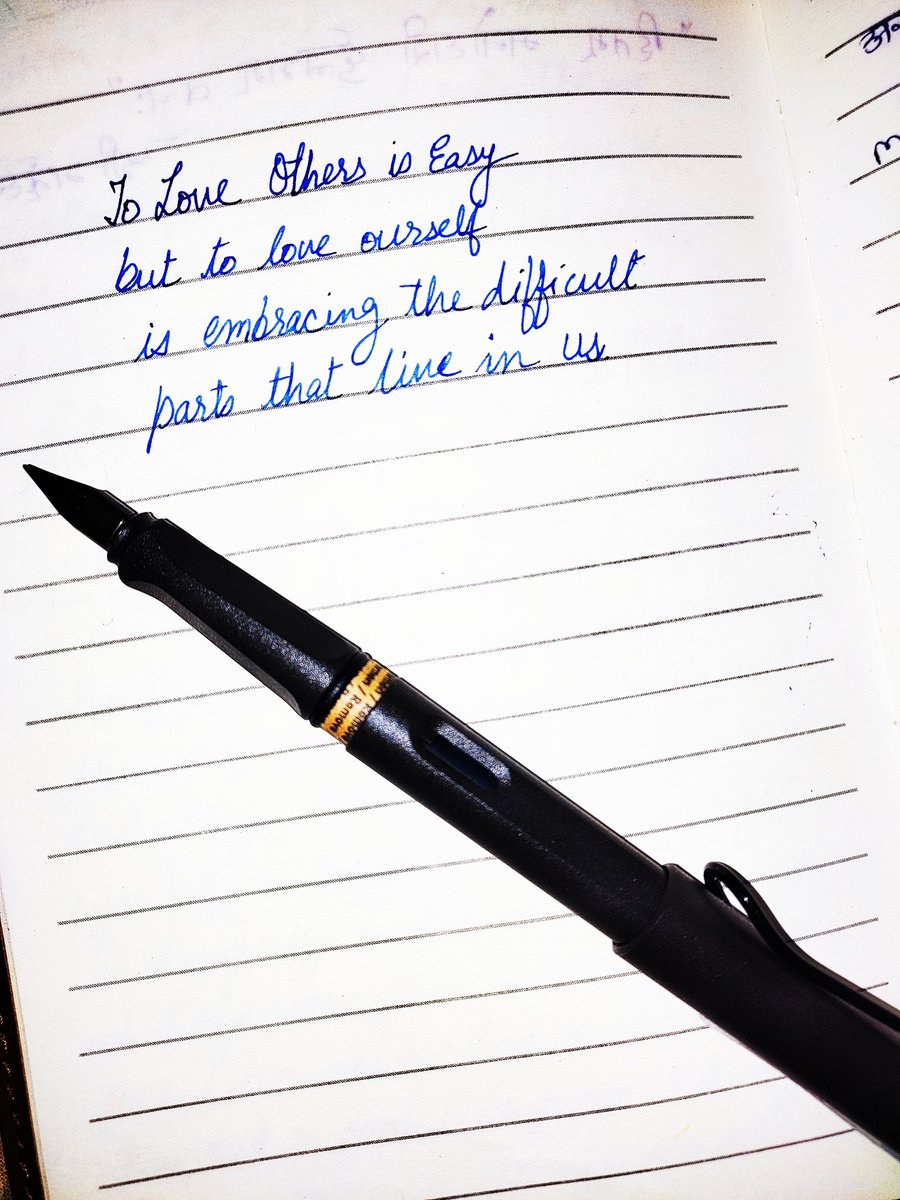 To Love Others is Easy
but to love ourself
is embracing the difficult
parts that live in us